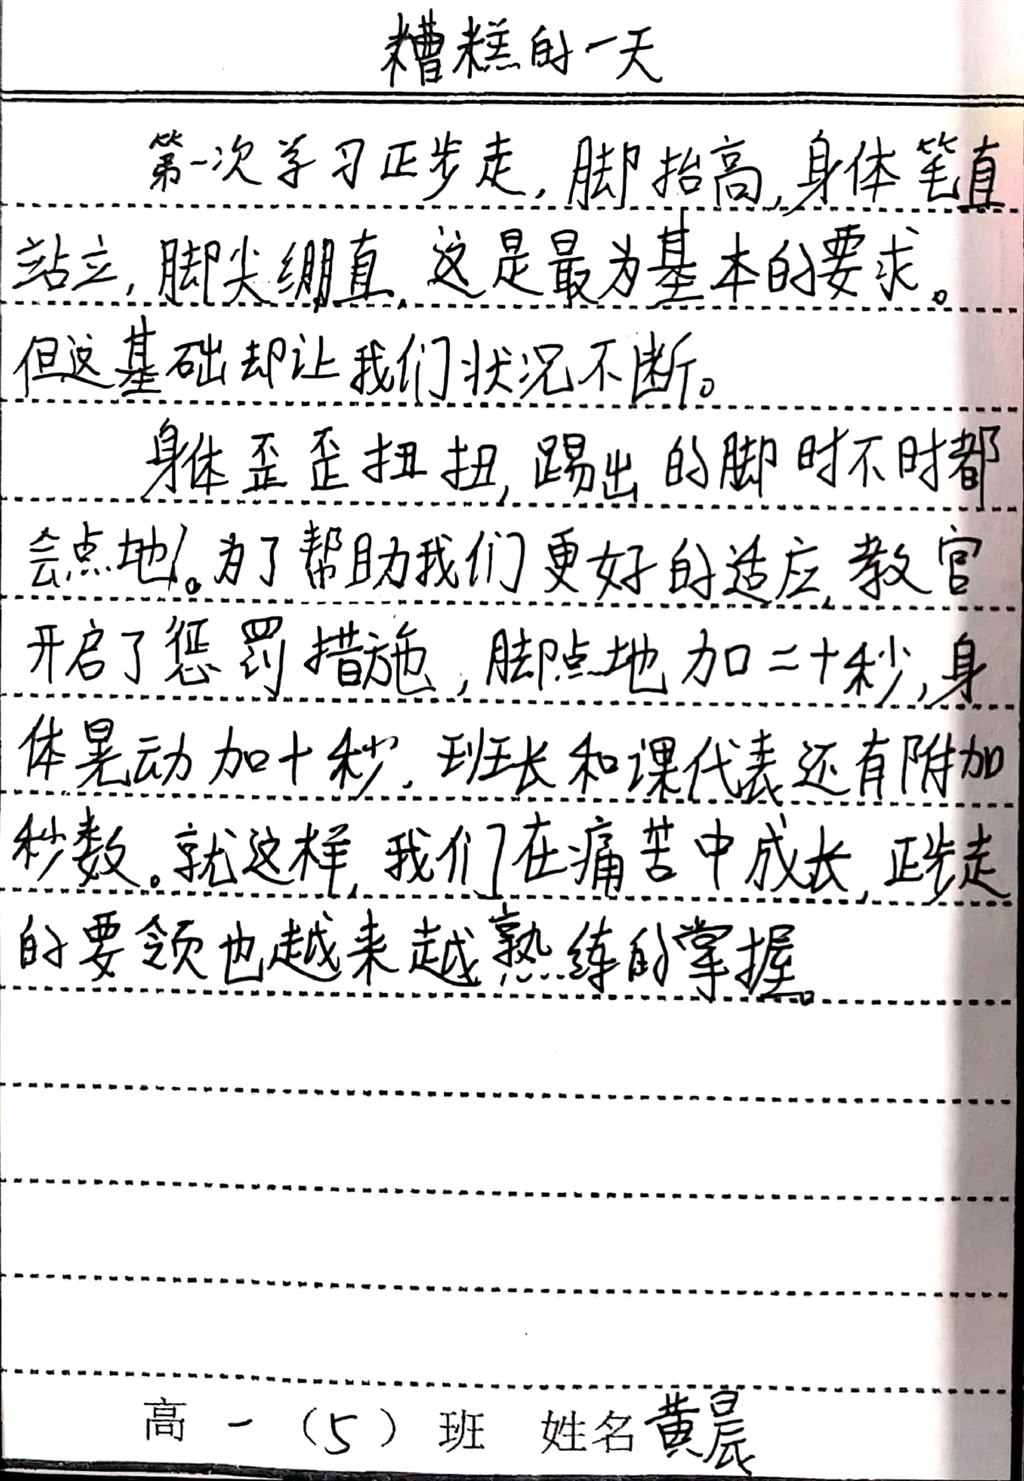 糟糕的一天
第一次学习正步走,脚抬高,身体笔直
站立,脚尖绷直,这是最为基本的要求。
但这基础却让我们状况不断。
身体歪歪扭扭,踢出的脚时不时都
会点地。为了帮助我们更好的适应,教官
开启了惩罚措施,脚点地加二十秒,身
体晃动加十秒,班长和课代表还有附加
秒数。就这样,我们在痛苦中成长,正步走
的要领也越来越熟练的掌握。
高一(5)班 姓名黄晨